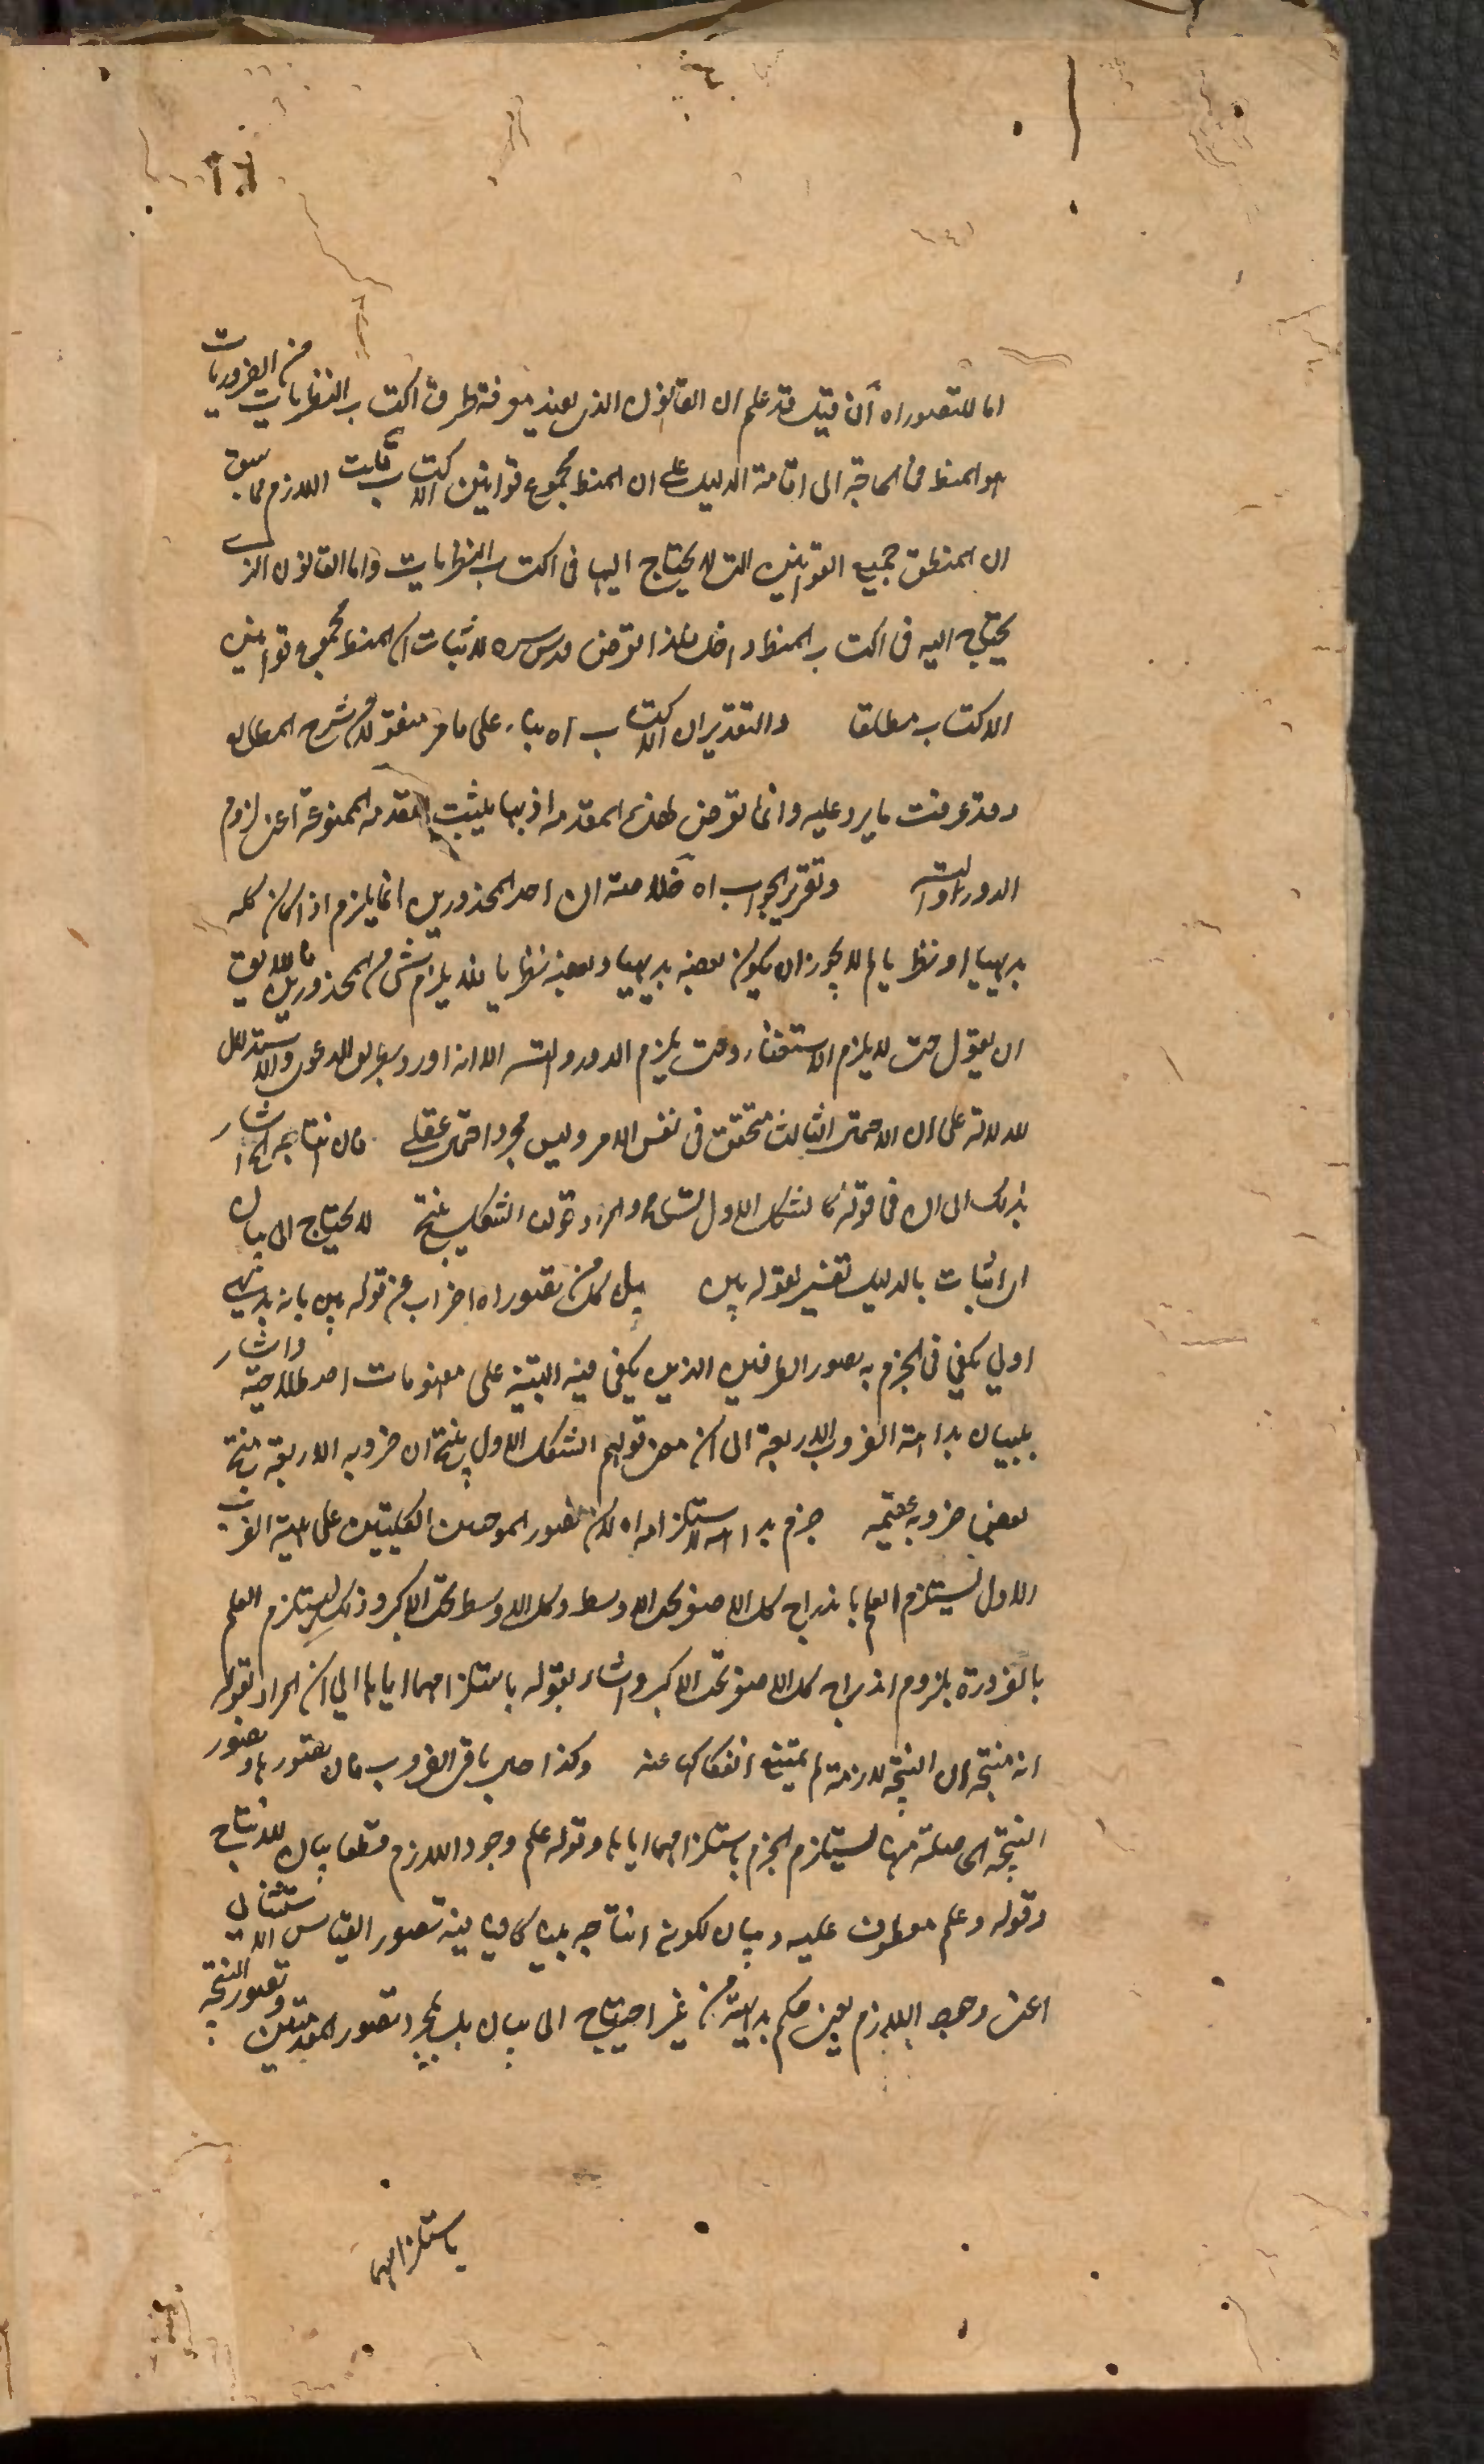 اما للتصور اه فان قيل قد علم ان القانون الذى يفيد معرفة طرق اكتساب النظريات من الضروريات
هو المنطق فما الحاجة الى اقامة الدليل على ان المنطق مجموع قوانين الاكتساب قلت اللازم مما سبق
ان المنطق جميع القوانين التى لا يحتاج اليها فى اكتساب النظريات واما القانون الذى
يحتاج اليه فى اكتساب المنطق داخل فلذا تعرض قدس سره لاثبات ان المنطق مجموع قوانين
الاكتساب مطلقا والتقدير ان الاكتساب اه بناء على ما مر منقولا من شرح المطالع
وقد عرفت ما يرد عليه وانما تعرض لهذه المقدمة اذ بها يثبت المقدمة الممنوعة اعنى لزوم
الدور او التسلسل وتقرير الجواب اه خلاصته ان احد المحذورين انما يلزم اذا كان كله
بديهيا او نظريا لم لا يجوز ان يكون بعضه بديهيا وبعضه نظريا فلا يلزم شئ من المحذورين فاللائق
ان يقول حتى لا يلزم الاستغناء وحتى يلزم الدور والتسلسل الا انه اورد بطريق الدعوى والاستدلال
للدلالة على ان الاحتمال الثالث متحقق فى نفس الامر وليس مجرد احتمال عقلى فان انتاجه اه اشار
بذلك الى ان فى قوله كالشكل الاول تسامحا والمراد قولنا الشكل منتج لا يحتاج الى بيان
اى اثبات بالدليل تفسير لقوله بين بل كل من تصور اه اضراب عن قوله بين بانه بديهى
اولي يكفى فى الجزم به تصور الطرفين الذين يكفى فيه التنبيه على مفهومات اصطلاحية واشار
ببيان بداهة الضروب الاربعة الى ان معنى قولهم الشكل الاول منتج ان ضروبه الاربعة منتجة
بعض ضروبه عقيمة جزم بداهة استلزامه اه لان تصور الموجبتين الكليتين على هيئة الضرب
الاول يستلزم العلم باندراج كل الاصغر تحت الاوسط وكل الاوسط تحت الاكبر وذلك يستلزم العلم
بالضرورة بلزوم اندراج كل الاصغر تحت الاكبر واشار بقوله باستلزامهما اياها الى ان المراد بقوله
انه منتج ان النتيجة لازمة له يمتنع انفكاكها عنه وكذا حال باقى الضروب فان تصورها وتصور
النتيجة الحاصلة منها يستلزم الجزم باستلزامهما اياها وقوله علم وجود اللازم قطعا بيان للانتاج
وقوله وعلم معطوف عليه وبيان لكونه انتاجه بينا كافيا فيه تصور القياس الاستثنائى
اعنى وجود اللازم يعنى حكم بداهة من غير احتياج الى بيان بل بمجرد تصور المقدمتين وتصور النتيجة
باستلزامهما